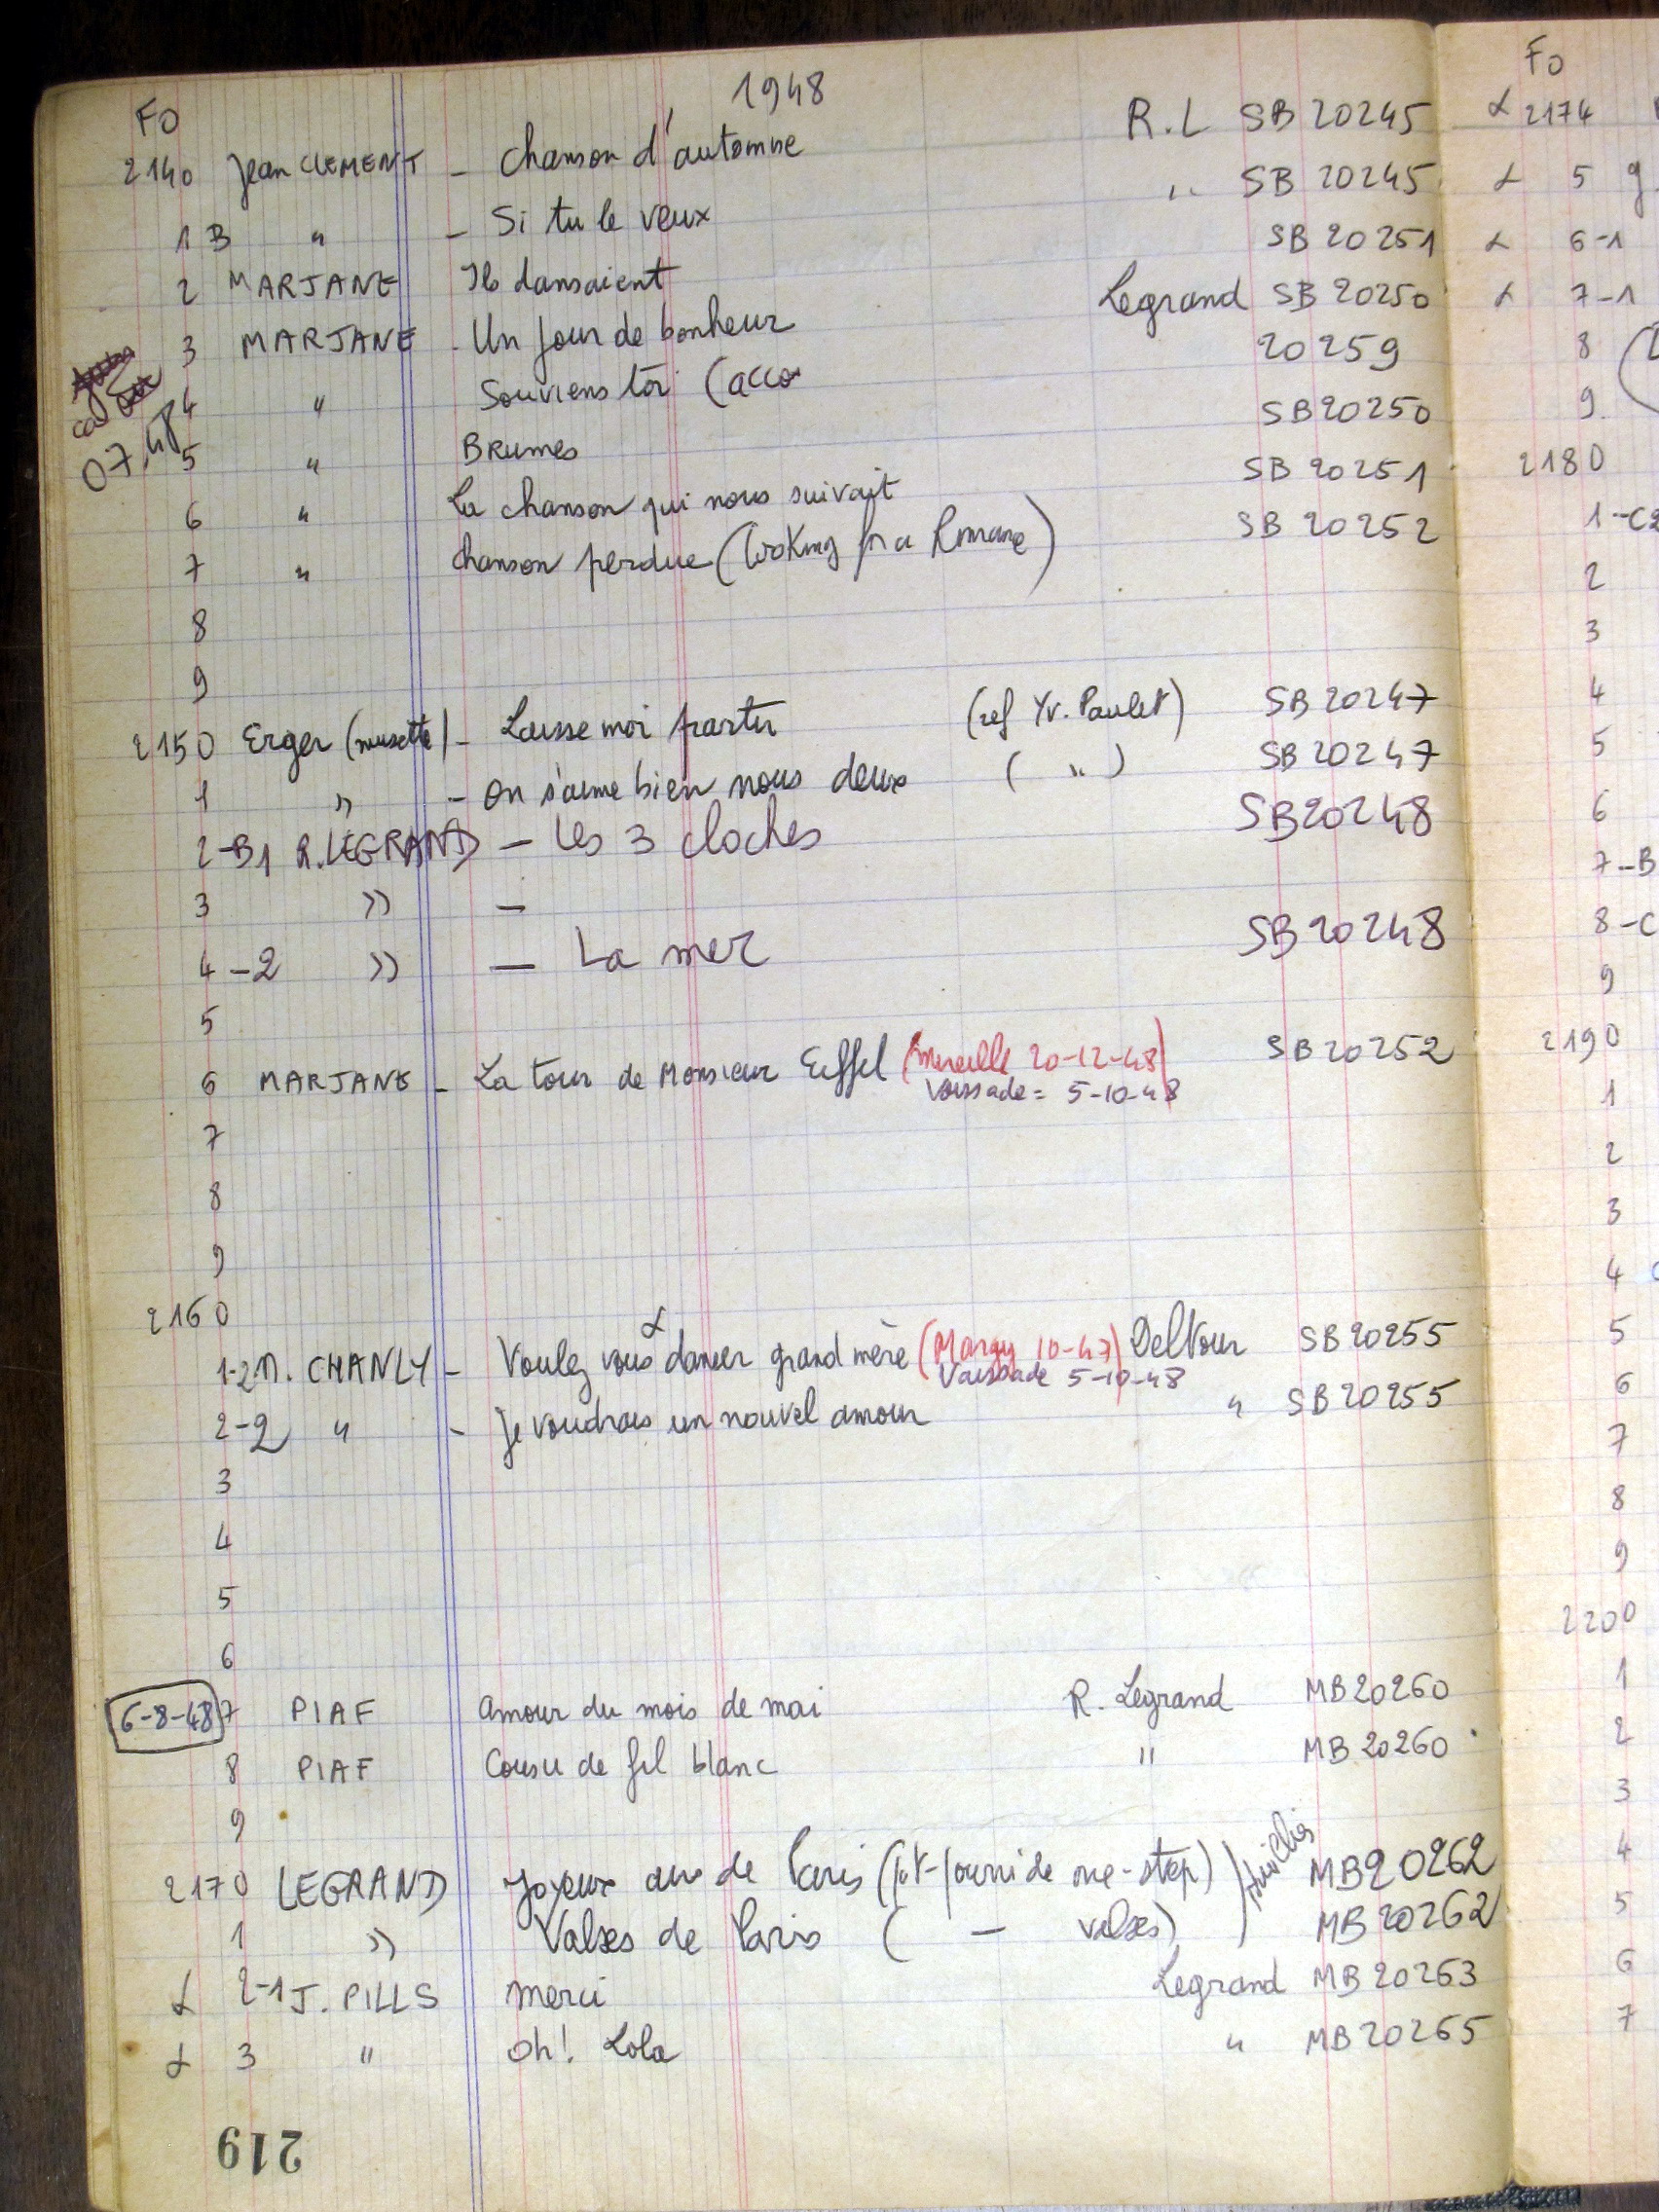 1948
FO
2140 Jean CLEMENT - Chanson d'automne R.L SB 20245
1 B " - Si tu le veux " SB 20245
2 MARJANE Ils dansaient SB 20251
3 MARJANE - Un jour de bonheur Legrand SB 20250
4 " Souviens toi (acco 20259
ca
07.48
5 " Brumes SB20250
6 " La chanson qui nous suivait SB 20251
7 " Chanson perdue (looking for a Romance) SB 20252
8
9
2150 Erger (musette) - Laisse moi partir (ref Yv. Paulet) SB 20247
1 " - On s'aime bien nous deux ( " ) SB 20247
2-B1 R. LEGRAND - Les 3 cloches SB20248
3 " -
4-2 " - La mer SB20248
5
6 MARJANE - La tour de Monsieur Eiffel (Mireille 20-12-48) SB20252
Vaissade = 5-10-48
7
8
9
2160
1-2 M. CHANLY - Voulez vous danser grand mère (Margy 10-47) Deltour SB20255
Vaissade 5-10-48
2-2 " - Je voudrais un nouvel amour " SB20255
3
4
5
6
6-8-48 7 PIAF Amour du mois de mai R. Legrand MB20260
8 PIAF Cousu de fil blanc " MB20260
9
2170 LEGRAND Joyeux airs de Paris (Pot-pourri de one-step) MB20262
1 " Valses de Paris ( — valses) MB20262
α 2-1 J. PILLS Merci Legrand MB20263
α 3 " Oh! Lola " MB20265
219
FO
α 2174
α 5 g
α 6-1
α 7-1
8
9
2180
1-C2
2
3
4
5
6
7-B
8-C
9
2190
1
2
3
4
5
6
7
8
9
2200
1
2
3
4
5
6
7